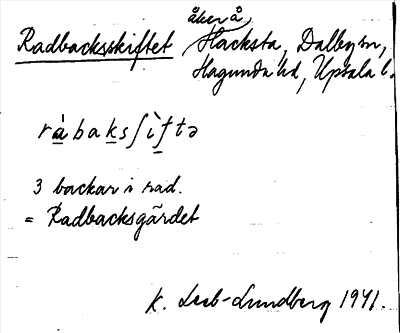 åker å
Radbacksskiftet Hacksta, Dalby sn,
Hagunda hd, Uppsala l.
ràbaksʃìftə
3 backar i rad.
= Radbacksgärdet
K. Leeb-Lundberg 1941.